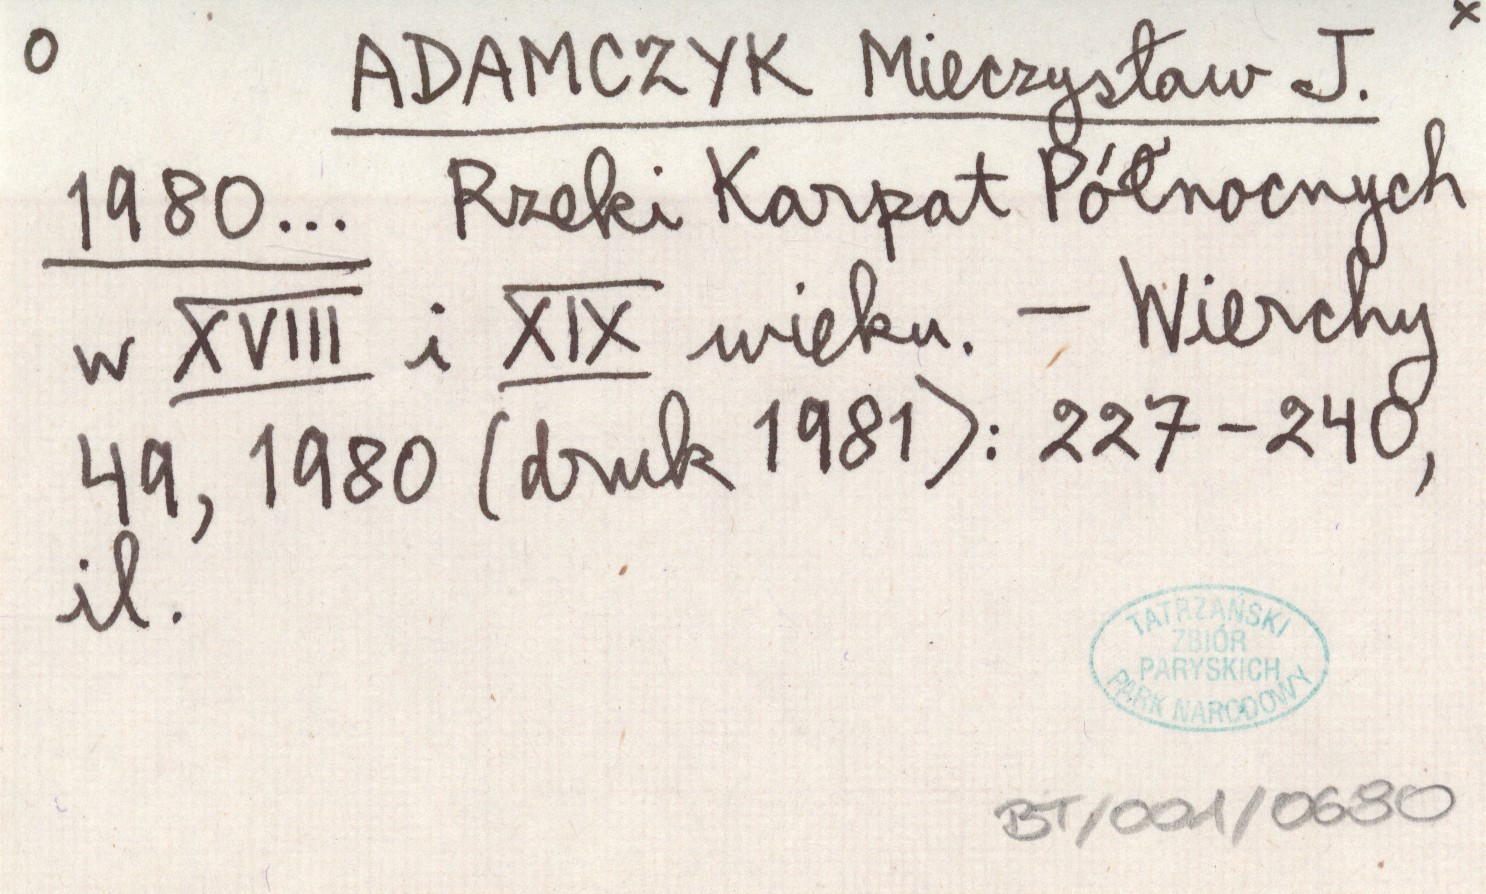 O ADAMCZYK Mieczysław J. x
1980... Rzeki Karpat Północnych
w XVIII i XIX wieku. — Wierchy
49, 1980 (druk 1981): 227-240,
il.
TATRZAŃSKI
ZBIÓR
PARYSKICH
PARK NARODOWY
BT/001/0680